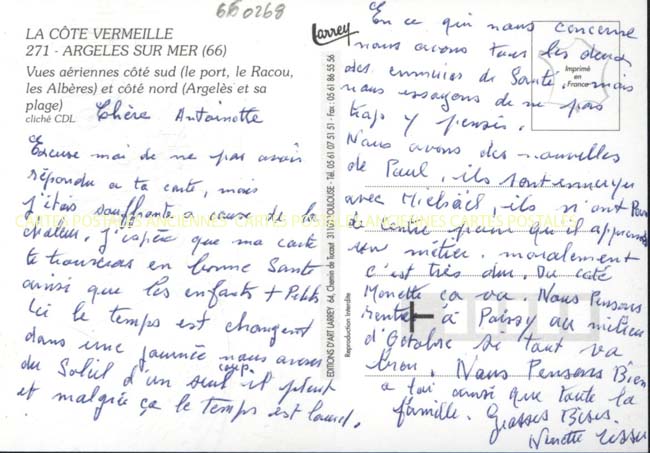 660268
LA CÔTE VERMEILLE
271 - ARGELES SUR MER (66)
Vues aériennes côté sud (le port, le Racou,
les Albères) et côté nord (Argelès et sa
plage)
cliché CDL
Chère Antoinette
Excuse moi de ne pas avoir
répondu a ta carte, mais
j'étais souffrante a cause de la
chaleur. J'espère que ma carte
te trouveras en bonne Santé
ainsi que les enfants + Petits
Ici le temps est changent
dans une journée nous avons
du Soleil d'un seul coup il pleut
et malgrée ça le temps est lourd.
Larrey
EDITIONS D'ART LARREY 64, Chemin de Tucaut 31167 TOULOUSE - Tél. 05 61 07 51 51 - Fax : 05 61 86 55 56
Reproduction Interdite
Imprimé
en
France
En ce qui nous concerne
nous avons tous les deux
des ennuies de Santé. mais
nous essayons de ne pas
trop y penser.
Nous avons des nouvelles
de Paul, ils sont ennuyer
avec Mickaël, ils n'ont Pas
de centre pour qu'il apprennent
son métier. moralement
c'est très dur. Du coté
Monette ça va. Nous Pensons
rentrer à Poissy au milieu
d'Octobre si tout va
bien. Nous Pensons Bien
a toi ainsi que toute la
famille. Grosses Bises.
Ninette
CARTES POSTALES ANCIENNES CARTES POSTALES ANCIENNES CARTES POSTALES